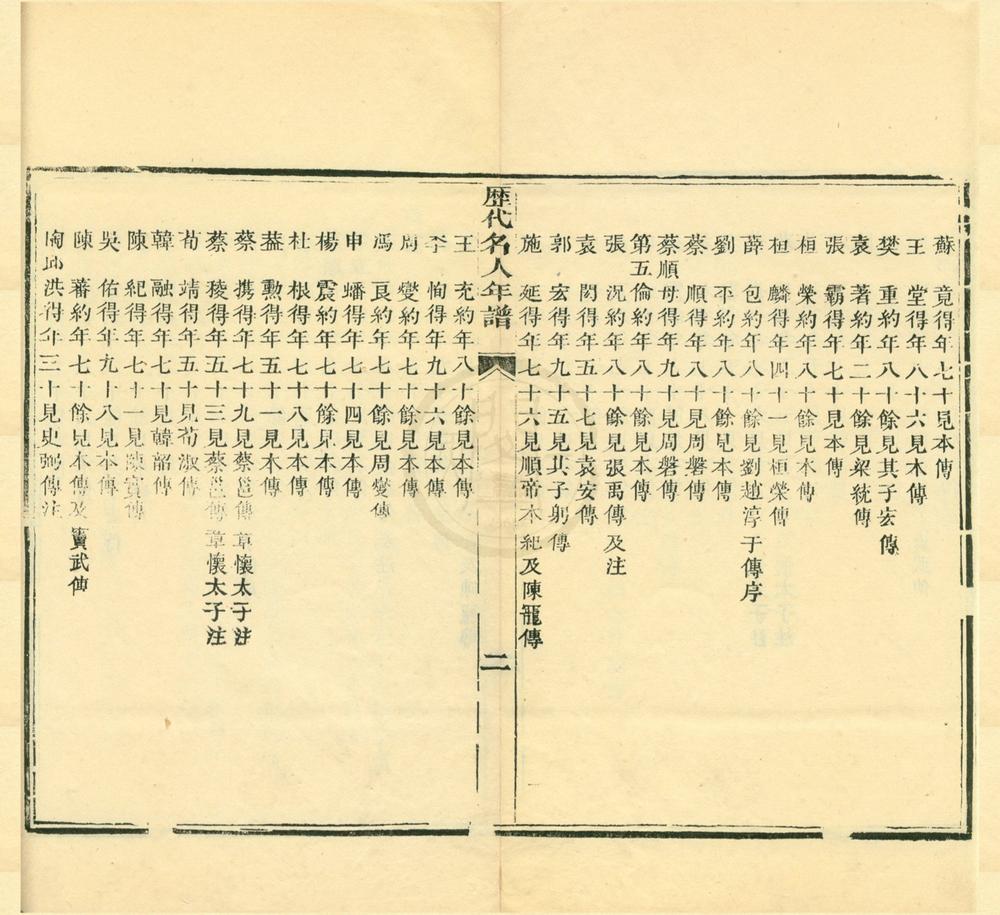 蘇竟得年七十見本傳
王堂得年八十六見本傳
樊重約年八十餘見其子宏傳
袁著約年二十餘見梁統傳
張霸得年七十見本傳
桓榮約年八十餘見本傳
桓麟得年四十一見桓榮傳
薛包約年八十餘見劉趙淳于傳序
劉平約年八十餘見本傳
蔡順得年八十見周磐傳
蔡順母得年九十見周磐傳
第五倫約年八十餘見本傳
張況約年八十餘見張禹傳及注
袁閎得年五十七見袁安傳
郭宏得年九十五見其子躬傳
施延得年七十六見順帝本紀及陳寵傳
歷代名人年譜
二
王充約年八十餘見本傳
李恂得年九十六見本傳
周燮約年七十餘見本傳
馮良約年七十餘見周燮傳
申蟠得年七十四見本傳
楊震約年七十餘見本傳
杜根得年七十八見本傳
蓋勳得年五十一見本傳
蔡攜得年七十九見蔡邕傳章懷太子注
蔡稜得年五十三見蔡邕傳章懷太子注
荀靖得年五十見荀淑傳
韓融得年七十見韓韶傳
陳紀得年七十一見陳寔傳
吳佑得年九十八見本傳
陳蕃約年七十餘見本傳及竇武傳
陶丘洪得年三十見史弼傳注